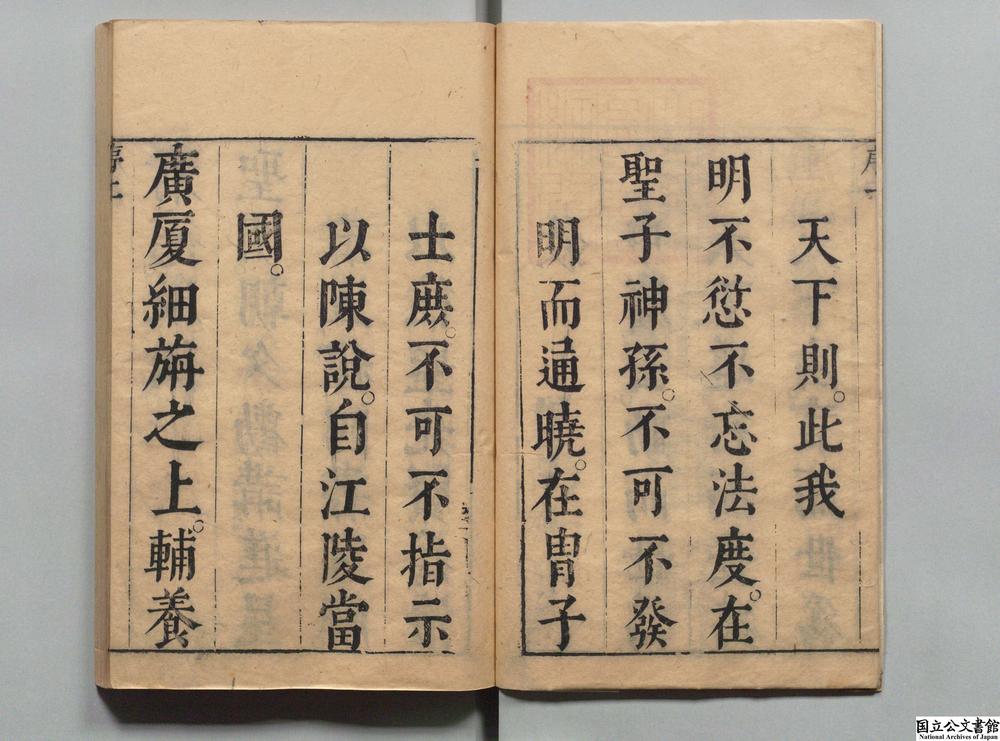 天下則。此我
明不愆不忘法度。在
聖子神孫。不可不發
明而通曉。在胄子
士庶。不可不指示
以陳說。自江陵當
國。
廣厦細旃之上。輔養
国立公文書館
National Archives of Japan